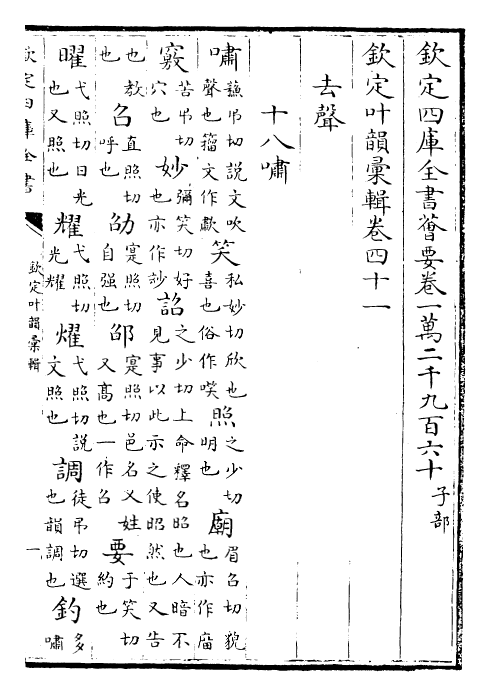 欽定四庫全書薈要卷一萬二千九百六十 子部
欽定叶韻彙輯卷四十一
去聲
十八嘯
嘯蘇弔切說文吹聲也籀文作歗笑私妙切欣也喜也俗作𥬇照之少切明也廟眉召切貌也亦作庿
竅苦弔切穴也妙彌笑切好也亦作玅詔之少切上命釋名昭也人暗不見事以此示之使昭然也又告也教也
召直照切呼也劭寔照切自强也邵寔照切邑名又姓又高也一作召要于笑切約也
曜弋照切日光也又照也耀弋照切光耀燿弋照切說文照也調徒弔切選也韻調也釣多嘯
欽定四庫全書
欽定叶韻彙輯
一